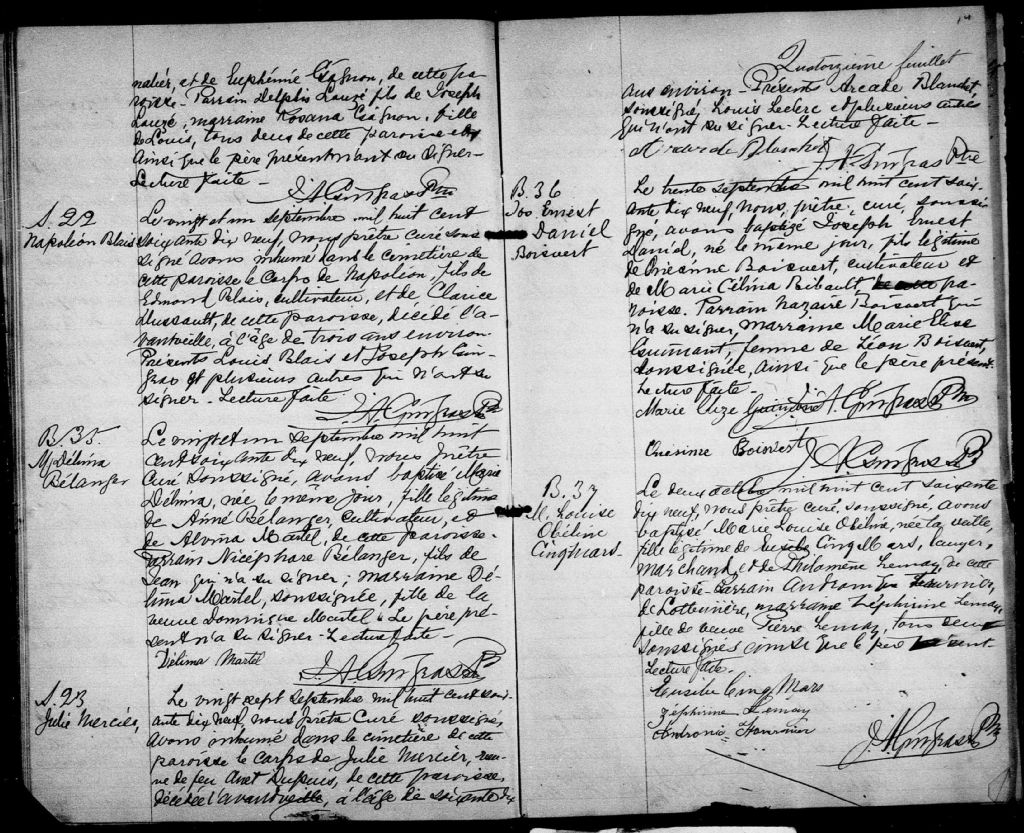 nalier, et de Euphémie Gagnon, de cette pa-
roisse. Parrain Delphis Lauzé fils de Joseph
Lauzé, marraine Rosana Gagnon, fille
de Louis, tous deux de cette paroisse
ainsi que le père présent n'ont su signer-
Lecture faite-
J. A. Gingras Ptre
S. 22
Napoléon Blais
Le vingt et un septembre mil huit cent
soixante dix neuf, nous prêtre curé sous-
signé avons inhumé dans le cimetière de
cette paroisse le corps de Napoléon, fils de
Edmond Blais, cultivateur, et de Clarice
Dussault, de cette paroisse, décédé l'a-
vantveille, à l'âge de trois ans environ-
Présents Louis Blais et Joseph Gin-
gras et plusieurs autres qui n'ont su
signer- Lecture faite
J. A. Gingras Ptre
B. 35.
M. Délima
Bélanger
Le vingt et un septembre mil huit
cent soixante dix neuf, nous prêtre
curé soussigné, avons baptisé Marie
Délima, née le même jour, fille légitime
de Aimé Bélanger, cultivateur, et
de Alvina Martel, de cette paroisse-
Parrain Nicéphore Bélanger, fils de
Jean qui n'a su signer; marraine Dé-
lima Martel, soussignée, fille de la
veuve Dominique Martel. Le père pré-
sent n'a su signer- Lecture faite-
Délima Martel
J. A. Gingras Ptre
S. 23
Julie Mercier,
Le vingt sept septembre mil huit cent soix-
ante dix neuf, nous Prêtre Curé soussigné,
avons inhumé dans le cimetière de cette
paroisse le corps de Julie Mercier, veu-
ve de feu Dupuis, de cette paroisse,
décédée l'avantveille, à l'âge de soixante dix
Quatorzième feuillet
ans environ- Présents Arcade Blanchet,
soussigné, Louis Leclerc et plusieurs autres
qui n'ont su signer- Lecture faite-
Arcade Blanchet
J. A. Gingras Ptre
B. 36
Jos Ernest
Daniel
Boisvert
Le trente septembre mil huit cent soix-
ante dix neuf, nous, prêtre, curé, soussi-
gné, avons baptisé Joseph Ernest
Daniel, né le même jour, fils légitime
de Onésime Boisvert, cultivateur et
de Marie Célina Ribault, pa-
roisse. Parrain Nazaire Boisvert qui
n'a su signer, marraine Marie Elise
Guimont, femme de Léon Boisvert,
soussignée, ainsi que le père présent-
Lecture faite-
Marie Elize J. A. Gingras Ptre
Onésime Boisvert J. A. Gingras Ptre
B. 37
M. Louise
Obéline
Cinqmars-
Le deux octobre mil huit cent soixante
dix neuf, nous prêtre curé, soussigné, avons
baptisé Marie Louise Obélina, née la veille,
fille légitime de Eusèbe Cinq Mars,
marchand, et de Philomène Lemay, de cette
paroisse- Parrain
de Lotbinière, marraine Zéphirine Lemay,
fille de veuve Pierre Lemay, tous deux
soussignés ainsi que le père présent
Lecture faite.
Eusèbe Cinq Mars
Zéphirine Lemay
J. A. Gingras Ptre